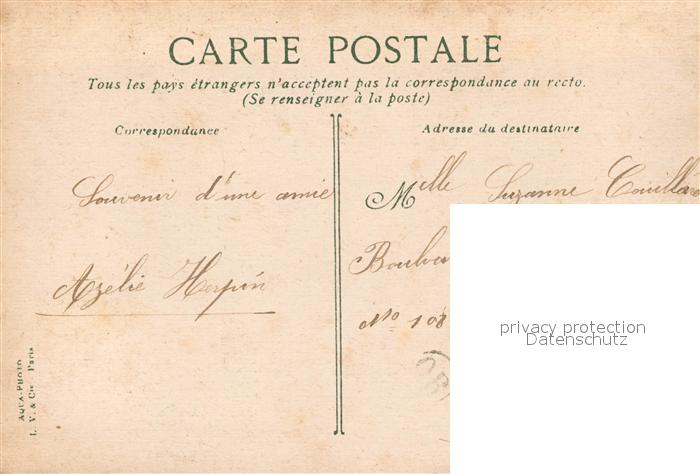 CARTE POSTALE
Tous les pays étrangers n'acceptent pas la correspondance au recto.
(Se renseigner à la poste)
Correspondance
Souvenir d'une amie
Azélie
AQUA-PHOTO
L. V. & Cie Paris
Adresse du destinataire
Mlle Suzanne
No 108
privacy protection
Datenschutz